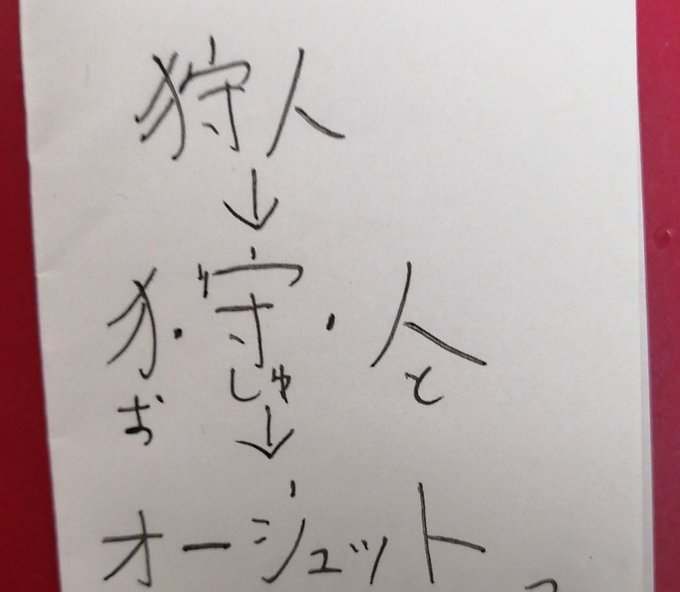 狩人
↓
犭・守・人
お しゅ と
↓
オージュット